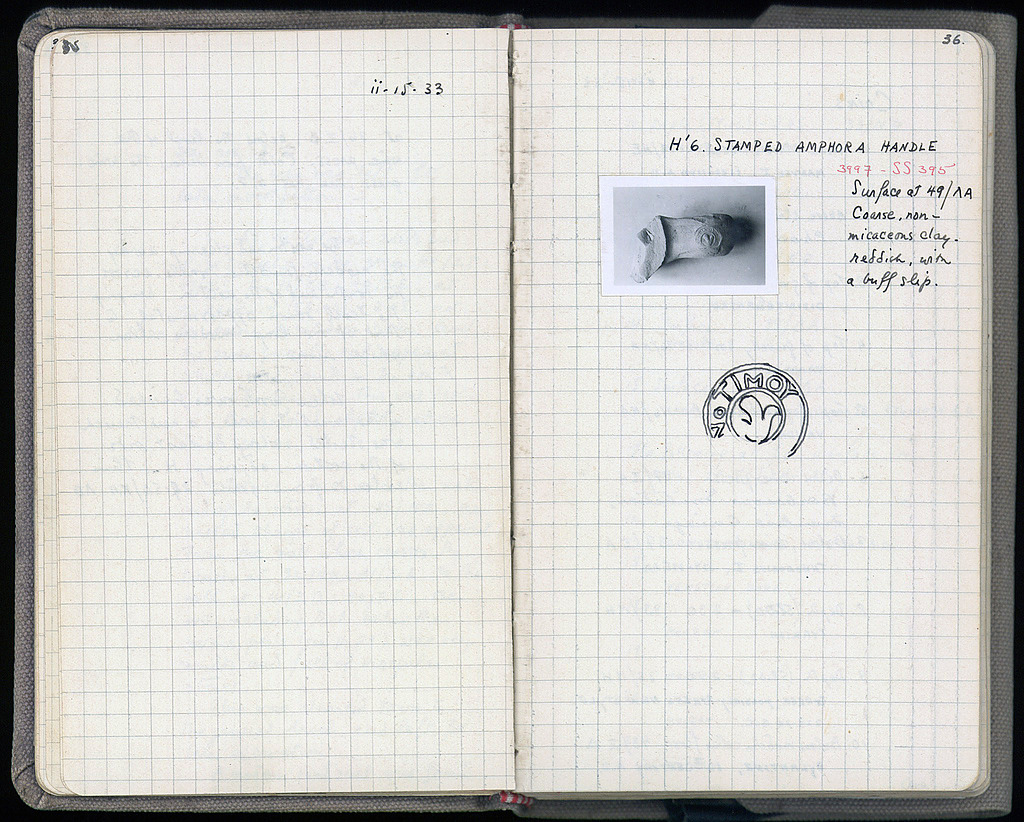 35
ii - 15 - 33
36.
H'6. STAMPED AMPHORA HANDLE
3997 - SS 395
Surface at 49/ΛΑ
Coarse, non-
micaceous clay.
reddish, with
a buff slip.
ΖΟΤΙΜΟΥ